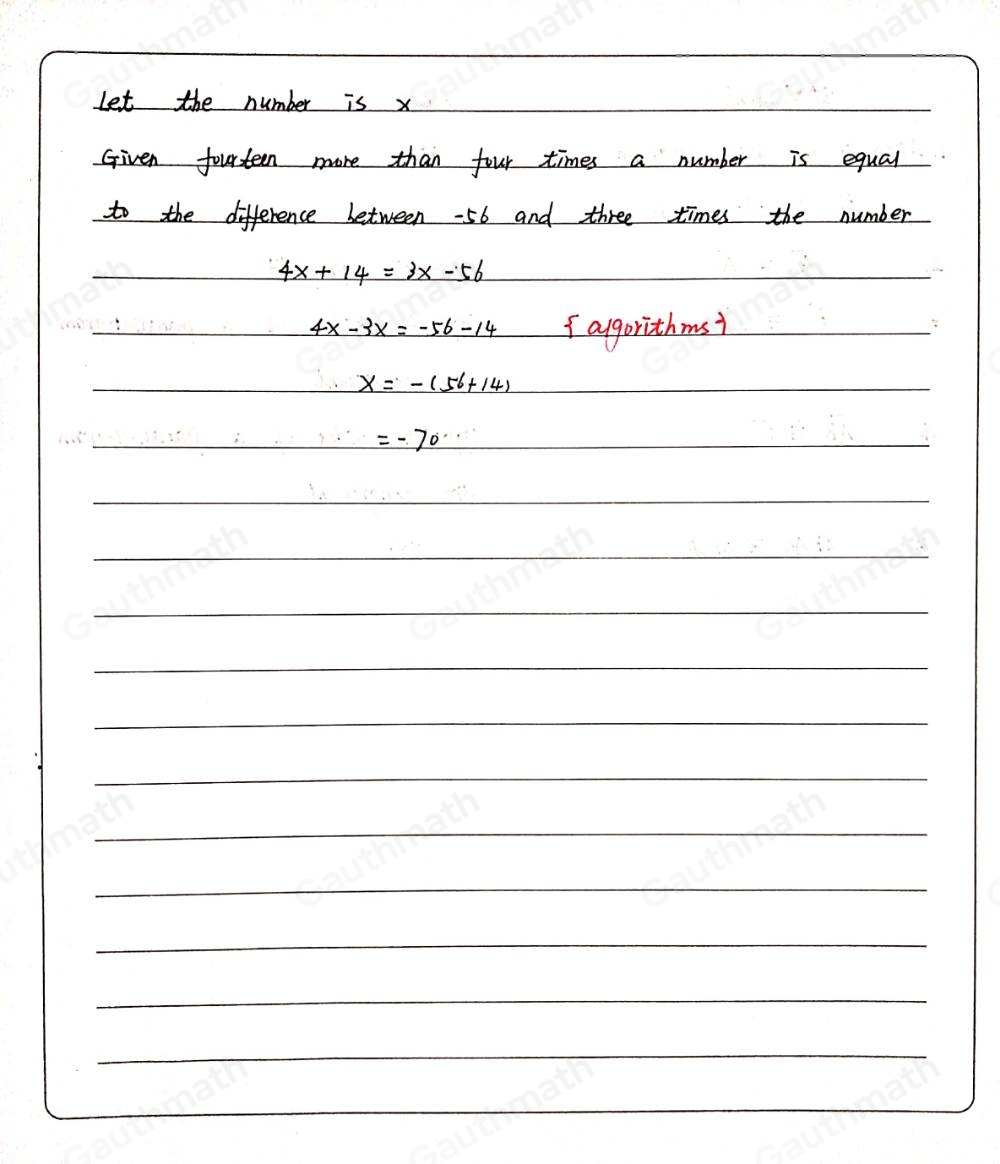 Let the number is x
Given fourteen more than four times a number is equal
to the difference between -56 and three times the number
4x + 14 = 3x - 56
4x - 3x = -56 - 14 {algorithms}
x = -(56+14)
= -70